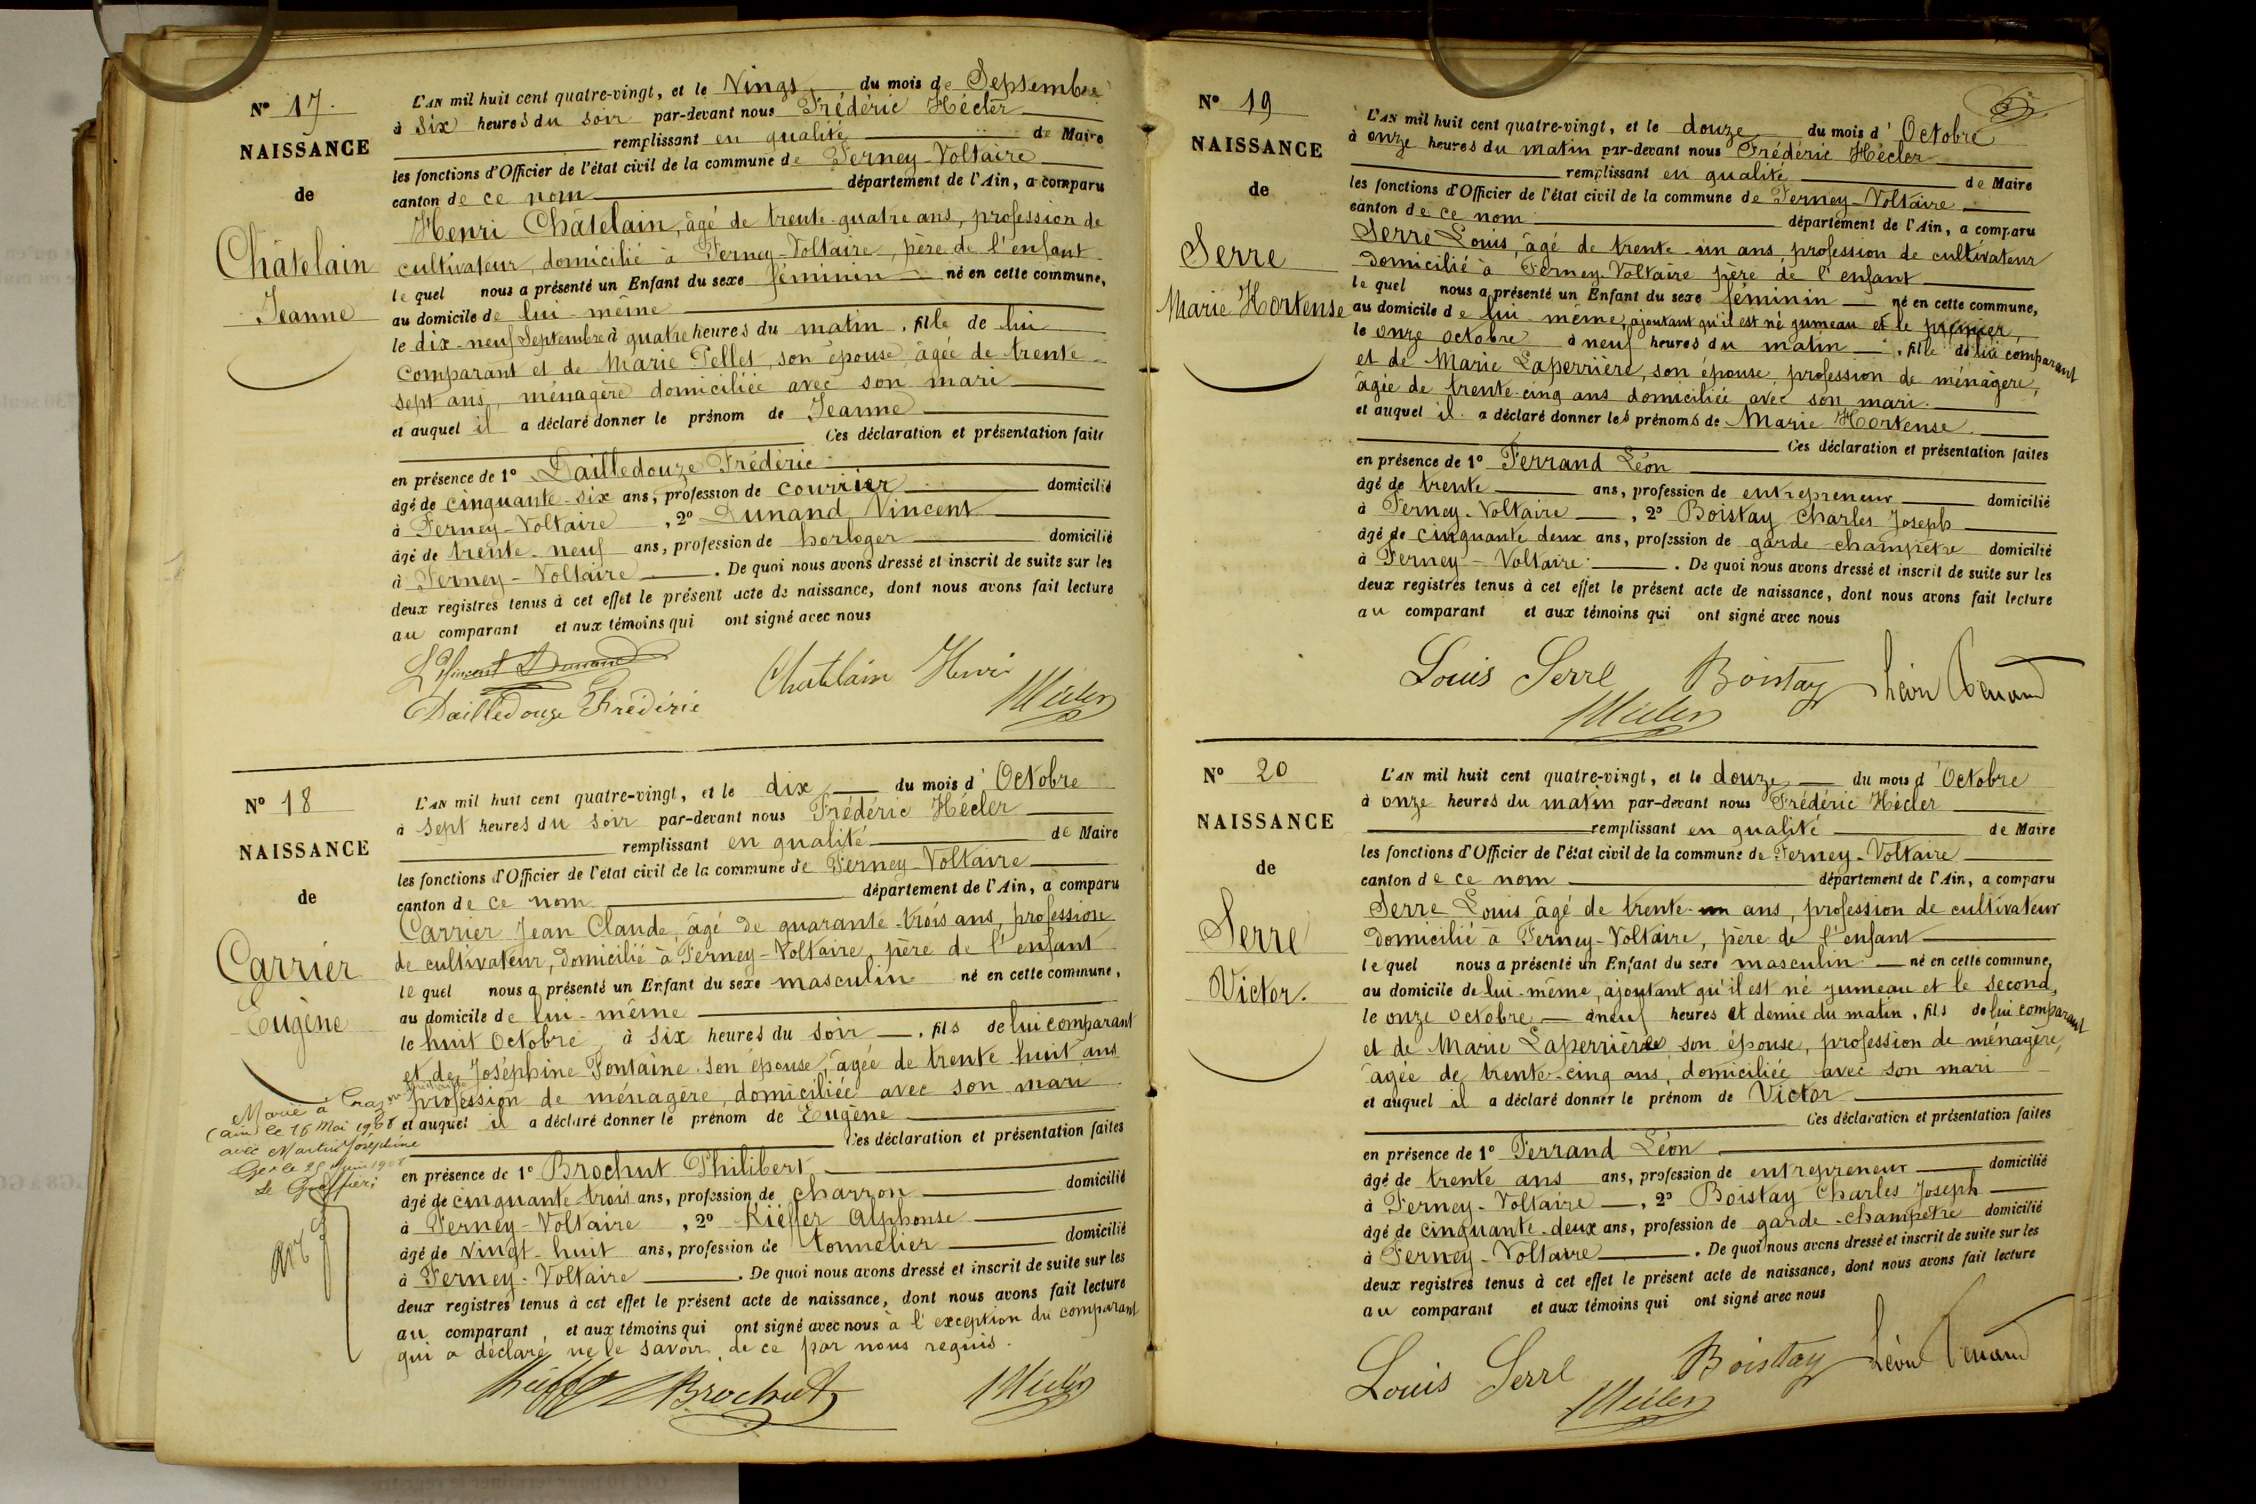 N° 17.
NAISSANCE
de
Châtelain
Jeanne
L'AN mil huit cent quatre-vingt, et le Vingt du mois de Septembre
à six heures du soir par-devant nous Frédéric Hécler
remplissant en qualité de Maire
les fonctions d'Officier de l'état civil de la commune de Ferney-Voltaire
canton de ce nom département de l'Ain, a comparu
Henri Châtelain, âgé de trente-quatre ans, profession de
cultivateur, domicilié à Ferney-Voltaire, père de l'enfant
lequel nous a présenté un Enfant du sexe féminin né en cette commune,
au domicile de lui-même
le dix-neuf Septembre à quatre heures du matin, fille de lui
comparant et de Marie Pellet, son épouse âgée de trente-
sept ans, ménagère domiciliée avec son mari
et auquel il a déclaré donner le prénom de Jeanne
Ces déclaration et présentation faite
en présence de 1° Dailledouze Frédéric
âgé de cinquante-six ans, profession de courrier domicilié
à Ferney-Voltaire, 2° Dunand Vincent
âgé de trente-neuf ans, profession de horloger domicilié
à Ferney-Voltaire. De quoi nous avons dressé et inscrit de suite sur les
deux registres tenus à cet effet le présent acte de naissance, dont nous avons fait lecture
au comparant et aux témoins qui ont signé avec nous
Vincent Dunand
Chatelain Henri
Dailledouze Frédéric
Hécler
N° 18
NAISSANCE
de
Carrier
Eugène
L'AN mil huit cent quatre-vingt, et le dix du mois d'Octobre
à sept heures du soir par-devant nous Frédéric Hécler
remplissant en qualité de Maire
les fonctions d'Officier de l'état civil de la commune de Ferney-Voltaire
canton de ce nom département de l'Ain, a comparu
Carrier Jean Claude, âgé de quarante-trois ans, profession
de cultivateur, domicilié à Ferney-Voltaire, père de l'enfant
lequel nous a présenté un Enfant du sexe masculin né en cette commune,
au domicile de lui-même
le huit Octobre, à six heures du soir, fils de lui comparant
et de Joséphine Fontaine son épouse, âgée de trente huit ans
profession de ménagère, domiciliée avec son mari
et auquel il a déclaré donner le prénom de Eugène
Ces déclaration et présentation faites
en présence de 1° Brochut Philibert
âgé de cinquante-trois ans, profession de charron domicilié
à Ferney-Voltaire, 2° Kieffer Alphonse
âgé de vingt-huit ans, profession de tonnelier domicilié
à Ferney-Voltaire. De quoi nous avons dressé et inscrit de suite sur les
deux registres tenus à cet effet le présent acte de naissance, dont nous avons fait lecture
au comparant, et aux témoins qui ont signé avec nous à l'exception du comparant
qui a déclaré ne le savoir de ce par nous requis.
Marié à
(ain) le 16 Mai 1908
avec Martin Joséphine
Gex le 25 1908
Le Greffier
Kieffer Brochut Hécler
N° 19
NAISSANCE
de
Serre
Marie Hortense
L'AN mil huit cent quatre-vingt, et le douze du mois d'Octobre
à onze heures du matin par-devant nous Frédéric Hécler
remplissant en qualité de Maire
les fonctions d'Officier de l'état civil de la commune de Ferney-Voltaire
canton de ce nom département de l'Ain, a comparu
Serre Louis, âgé de trente-un ans, profession de cultivateur
domicilié à Ferney-Voltaire père de l'enfant
lequel nous a présenté un Enfant du sexe féminin né en cette commune,
au domicile de lui-même, ajoutant qu'il est né jumeau et le premier,
le onze octobre à neuf heures du matin, fille de lui comparant
et de Marie Laperrière, son épouse, profession de ménagère,
âgée de trente-cinq ans domiciliée avec son mari.
et auquel il a déclaré donner les prénoms de Marie Hortense.
Ces déclaration et présentation faites
en présence de 1° Ferrand Léon
âgé de trente ans, profession de entrepreneur domicilié
à Ferney-Voltaire, 2° Boistay Charles Joseph
âgé de cinquante deux ans, profession de garde-champêtre domicilié
à Ferney-Voltaire. De quoi nous avons dressé et inscrit de suite sur les
deux registres tenus à cet effet le présent acte de naissance, dont nous avons fait lecture
au comparant et aux témoins qui ont signé avec nous
Louis Serre Boistay Léon Ferrand
Hécler
N° 20
NAISSANCE
de
Serre
Victor.
L'AN mil huit cent quatre-vingt, et le douze du mois d'Octobre
à onze heures du matin par-devant nous Frédéric Hécler
remplissant en qualité de Maire
les fonctions d'Officier de l'état civil de la commune de Ferney-Voltaire
canton de ce nom département de l'Ain, a comparu
Serre Louis âgé de trente-un ans, profession de cultivateur
domicilié à Ferney-Voltaire, père de l'enfant
lequel nous a présenté un Enfant du sexe masculin né en cette commune,
au domicile de lui-même, ajoutant qu'il est né jumeau et le second,
le onze octobre à neuf heures et demie du matin, fils de lui comparant
et de Marie Laperrière son épouse, profession de ménagère,
âgée de trente-cinq ans, domiciliée avec son mari
et auquel il a déclaré donner le prénom de Victor
Ces déclaration et présentation faites
en présence de 1° Ferrand Léon
âgé de trente ans ans, profession de entrepreneur domicilié
à Ferney-Voltaire, 2° Boistay Charles Joseph
âgé de cinquante-deux ans, profession de garde-champêtre domicilié
à Ferney-Voltaire. De quoi nous avons dressé et inscrit de suite sur les
deux registres tenus à cet effet le présent acte de naissance, dont nous avons fait lecture
au comparant et aux témoins qui ont signé avec nous
Louis Serre Boistay Léon Ferrand
Hécler